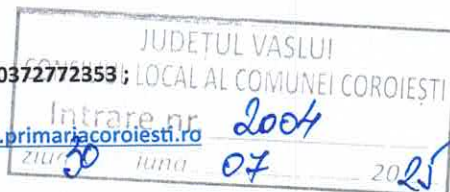 JUDEȚUL VASLUI
0372772353 ; CONSILIUL LOCAL AL COMUNEI COROIEȘTI
Intrare nr. 2004
.primariacoroiesti.ro
ziua 30 luna 07 2025